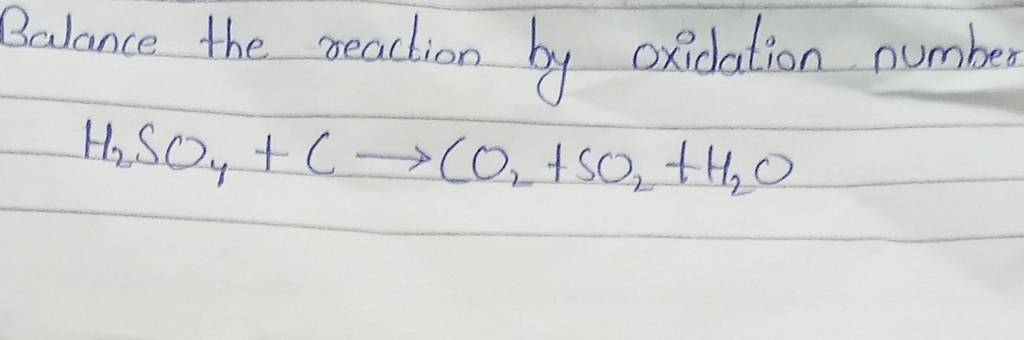 Balance the reaction by oxidation number
H₂SO₄ + C → CO₂ + SO₂ + H₂O